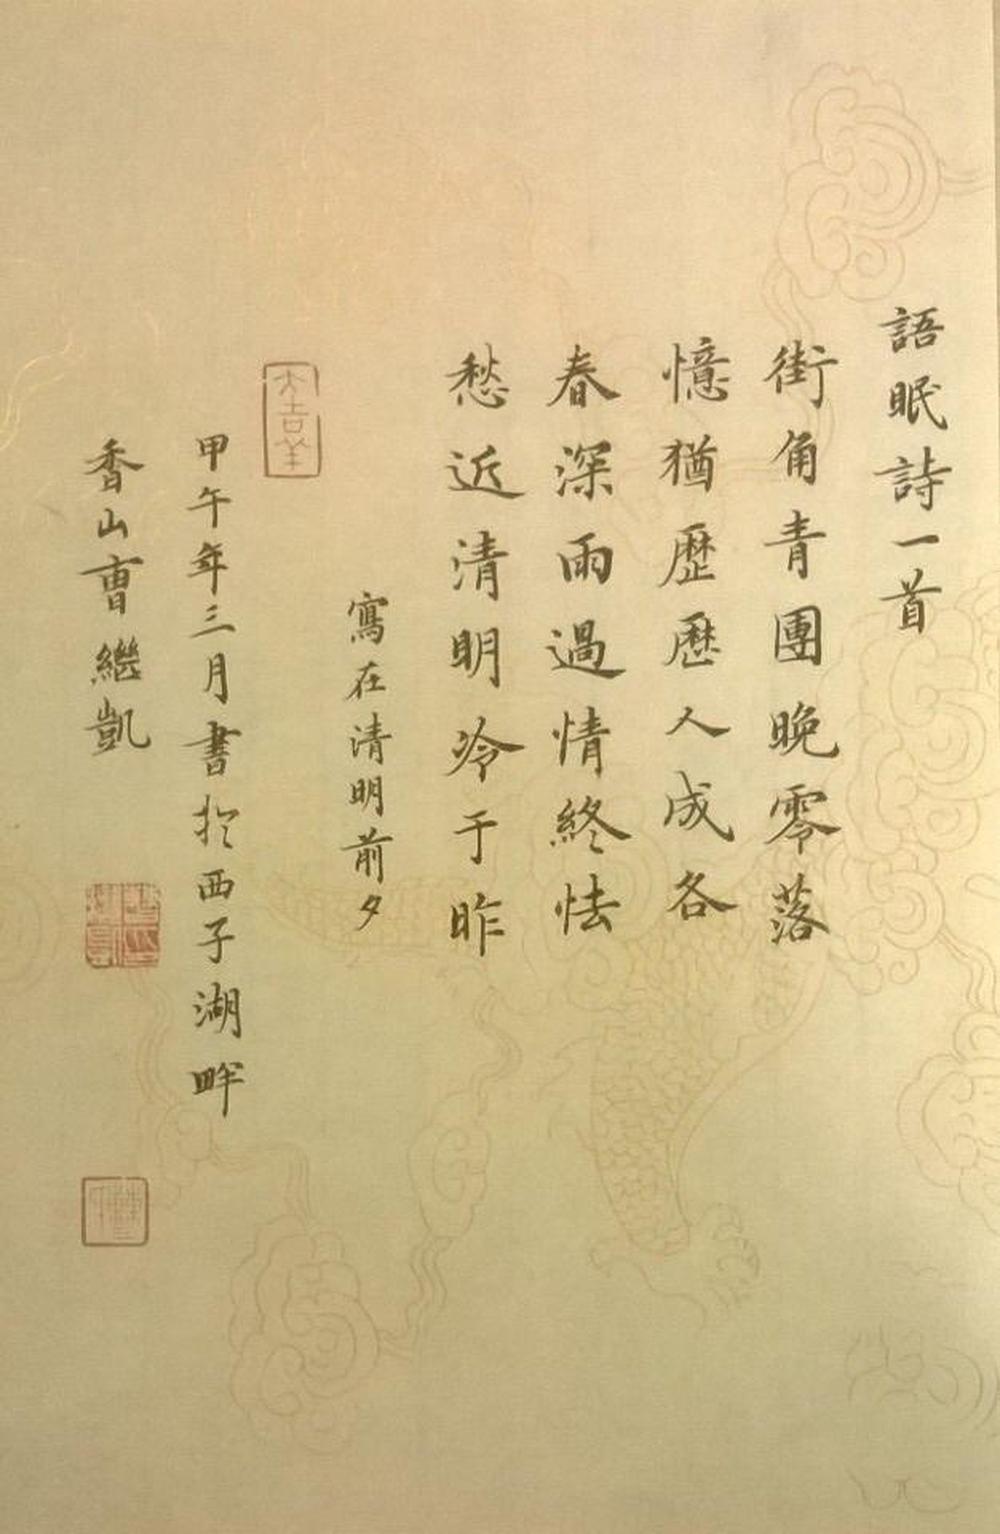 語眠詩一首
街角青團晚零落
憶猶歷歷人成各
春深雨過情終怯
愁近清明冷于昨
寫在清明前夕
大吉羊
甲午年三月書於西子湖畔
香山曹繼凱